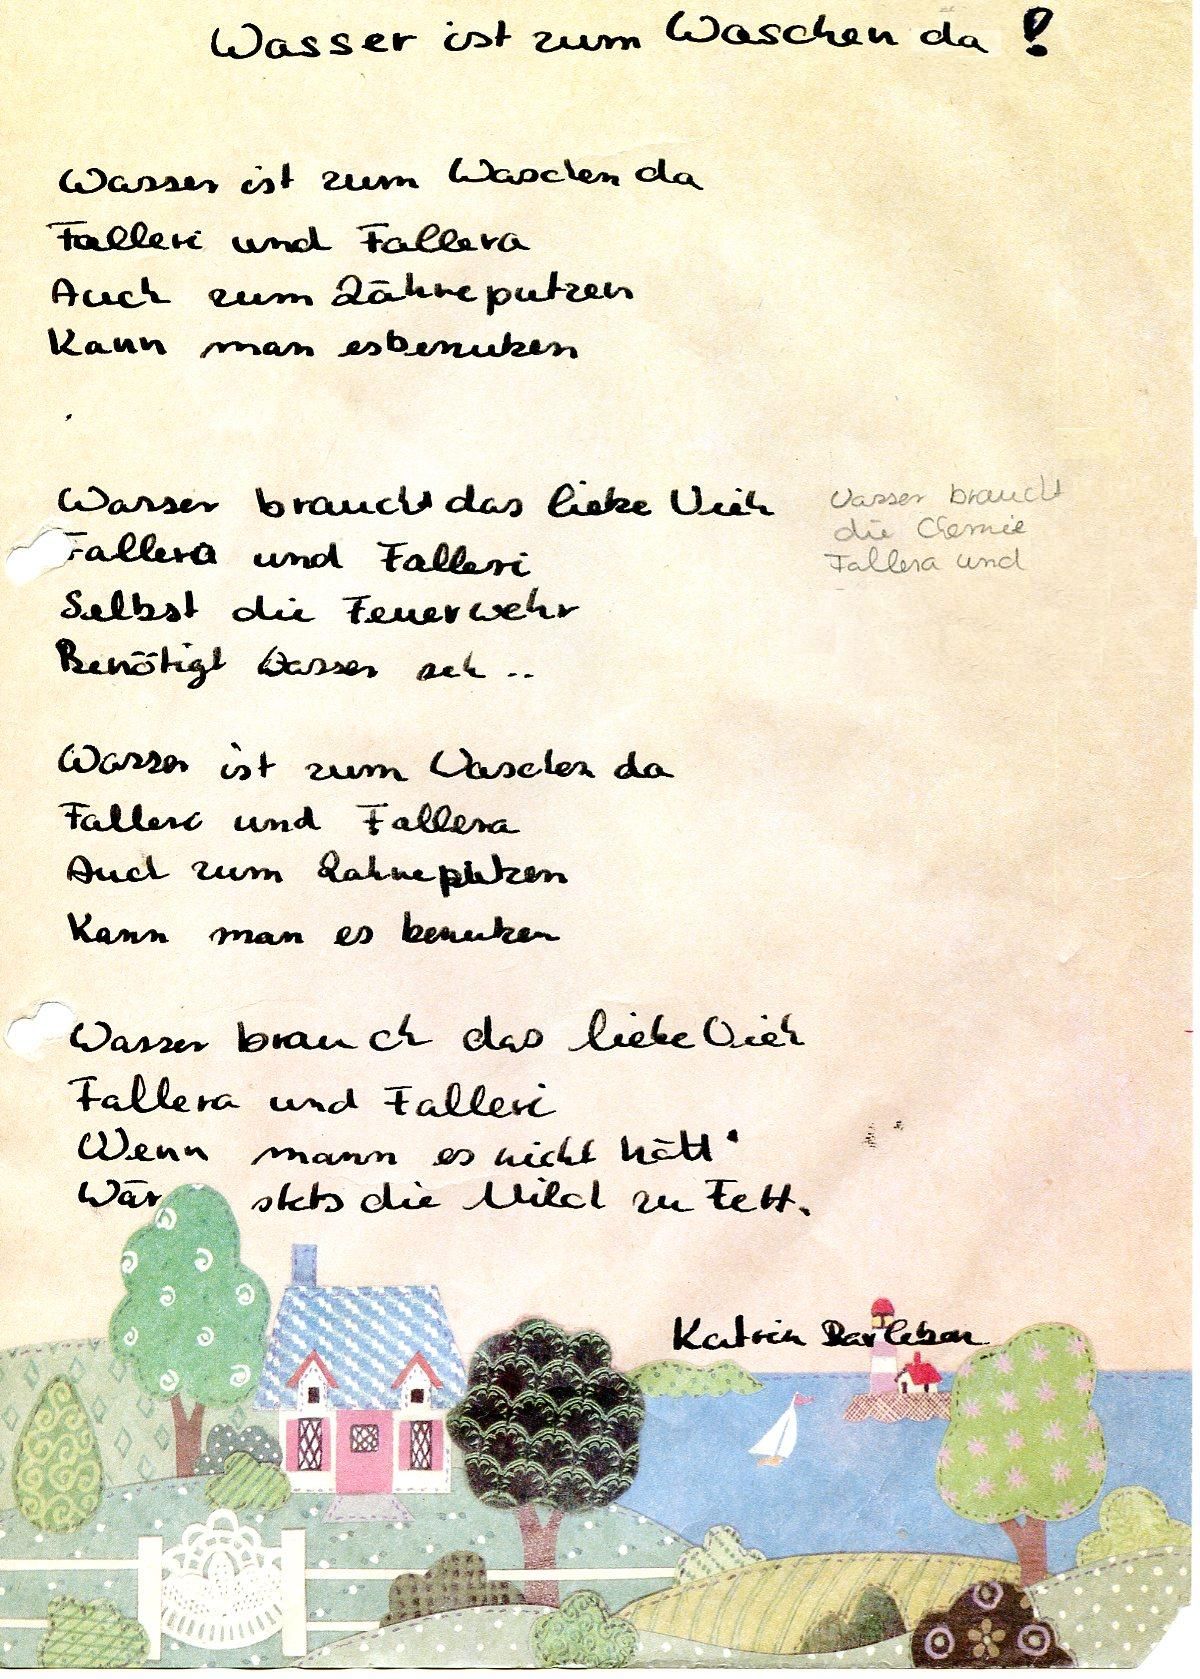 Wasser ist zum Waschen da !
Wasser ist zum Waschen da
Falleri und Fallera
Auch zum Zähneputzen
Kann man es benutzen
Wasser braucht das liebe Vieh
Fallera und Falleri
Selbst die Feuerwehr
Benötigt Wasser seh ..
Wasser braucht
die Chemie
Fallera und
Wasser ist zum Waschen da
Falleri und Fallera
Auch zum Zahneputzen
Kann man es benutzen
Wasser brauch das liebe Vieh
Fallera und Falleri
Wenn mann es nicht hätt'
Wär stets die Milch zu Fett.
Katrin